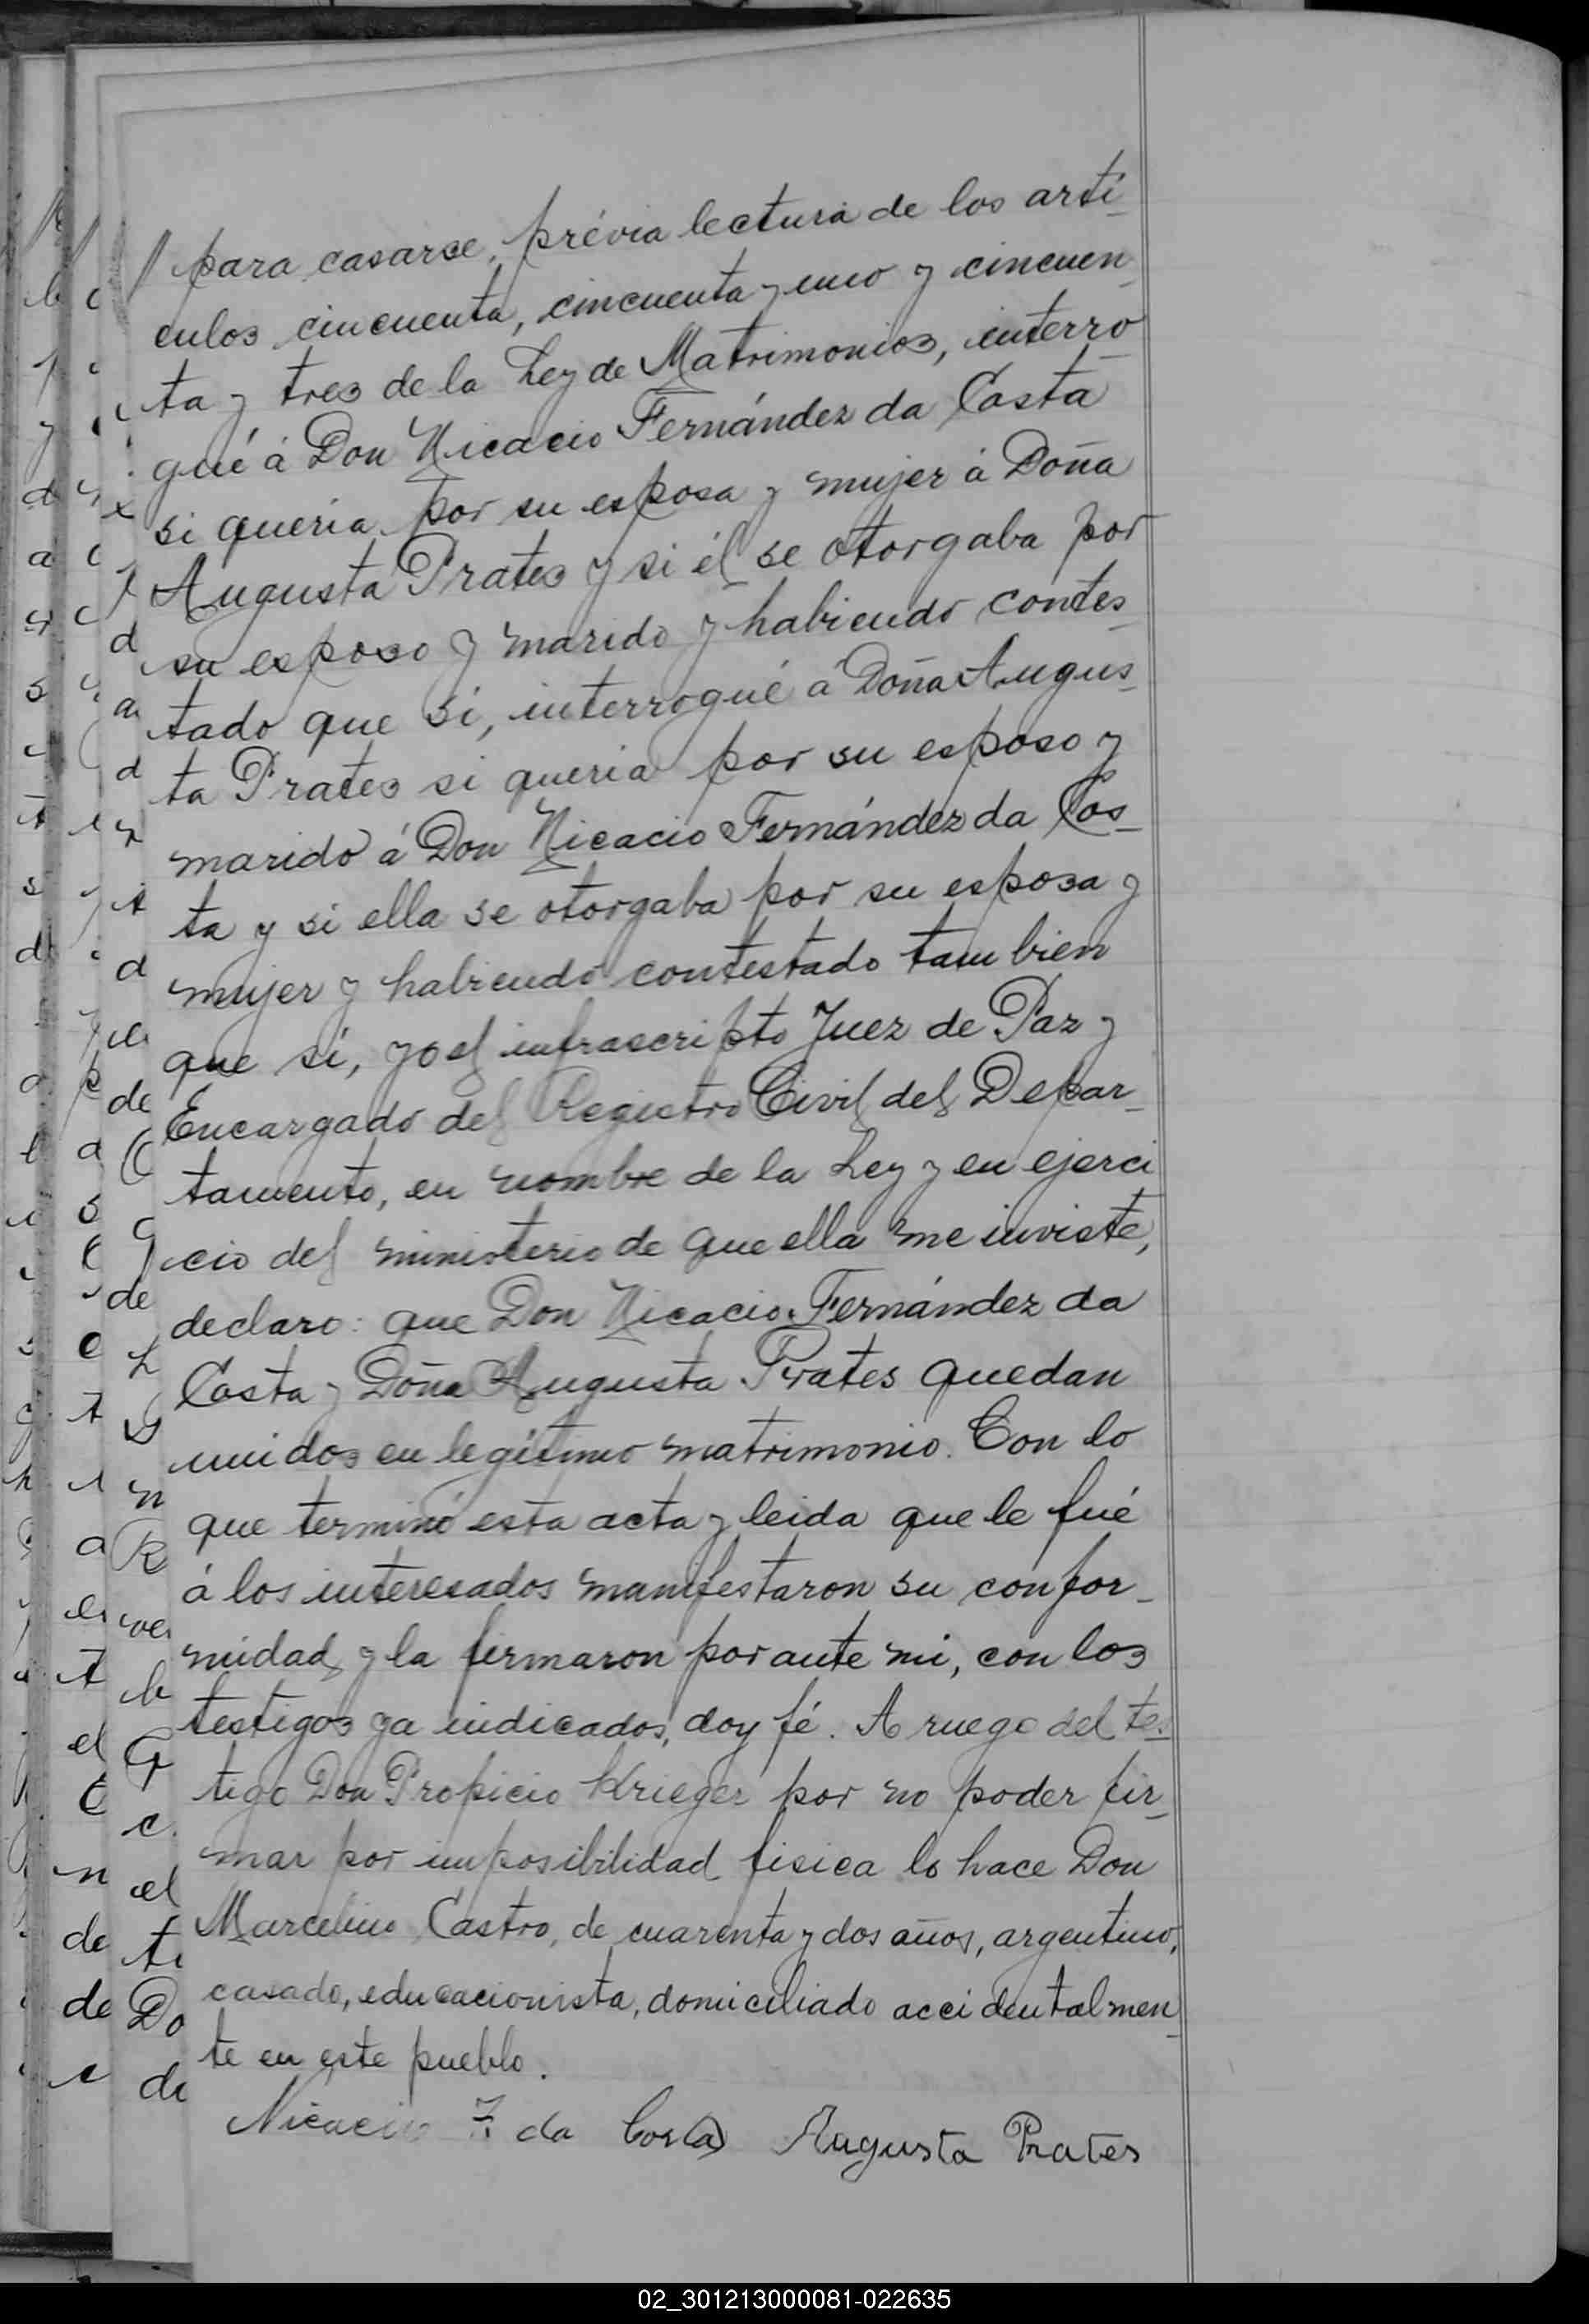 para casarse, prévia lectura de los artí-
culos cincuenta, cincuenta y uno y cincuen-
ta y tres de la Ley de Matrimonios, interro-
gué á Don Nicacio Fernández da Costa
si queria por su esposa y mujer á Doña
Augusta Prates y si él se otorgaba por
su esposo y marido y habiendo contes-
tado que sí, interrogué á Doña Augus-
ta Prates si queria por su esposo y
marido á Don Nicacio Fernández da Cos-
ta y si ella se otorgaba por su esposa y
mujer y habiendo contestado tambien
que sí, yo el infrascripto Juez de Paz y
Encargado del Registro Civil del Depar-
tamento, en nombre de la Ley y en ejerci
cio del ministerio de que ella me inviste,
declaro: que Don Nicacio Fernández da
Costa y Doña Augusta Prates quedan
unidos en legítimo matrimonio. Con lo
que terminó esta acta y leida que le fué
á los interesados manifestaron su confor-
midad y la firmaron por ante mi, con los
testigos ya indicados, doy fé. A ruego del tes-
tigo Don Propicio Krieger por no poder fir-
mar por imposibilidad fisica lo hace Don
Marcelino Castro, de cuarenta y dos años, argentino,
casado, educacionista, domiciliado accidentalmen-
te en este pueblo.
Nicacio F. da Costa Augusta Prates
02_301213000081-022635